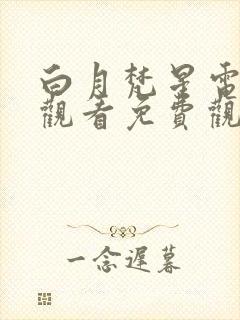 白月梵星電
觀看免費觀
一念遲暮